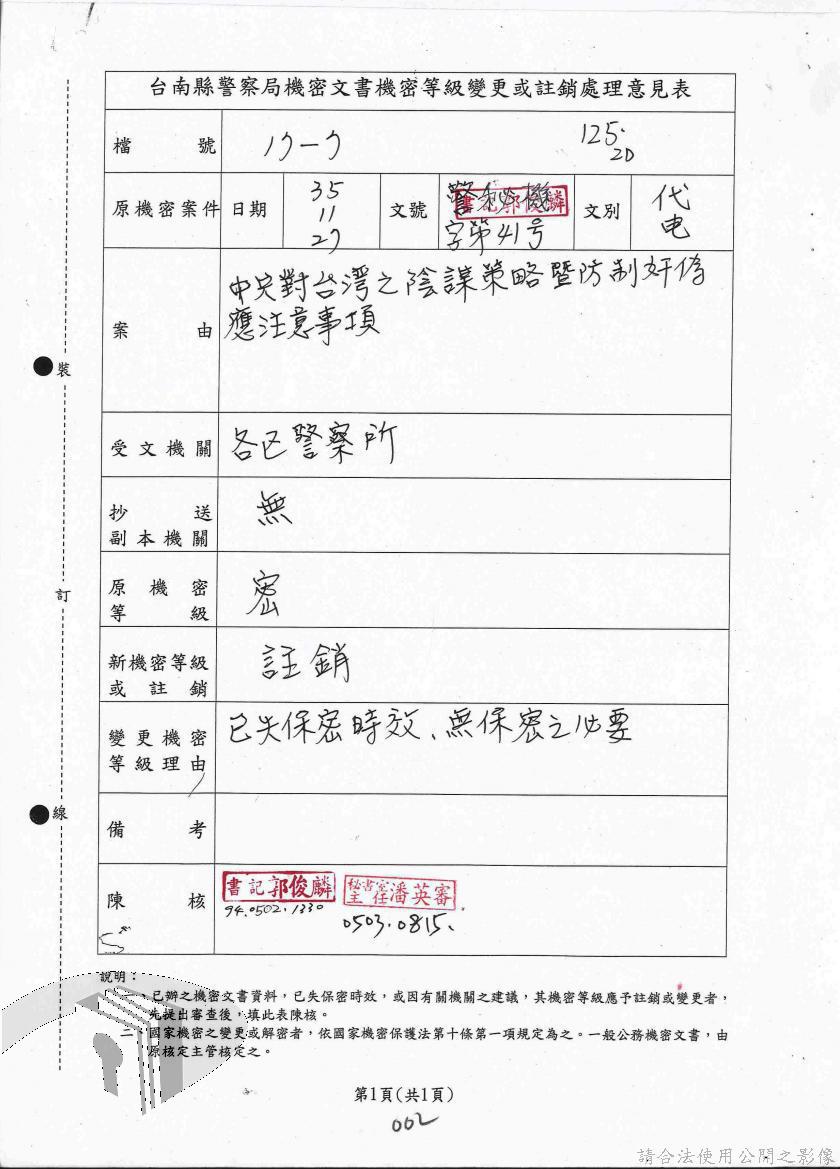 台南縣警察局機密文書機密等級變更或註銷處理意見表
檔號
125.
20
原機密案件
日期
35
11
27
文號
警秘機
字第41号
書記郭俊麟
文別
代
电
案由
中央對台灣之陰謀策略暨防制奸偽
應注意事項
受文機關
各区警察所
抄送
副本機關
無
原機密
等級
密
新機密等級
或註銷
註銷
變更機密
等級理由
已失保密時效、無保密之必要
備考
陳核
書記郭俊麟
94.0502.1330
秘書室
主任潘英審
0503.0815.
裝
訂
線
說明：
一、已辦之機密文書資料，已失保密時效，或因有關機關之建議，其機密等級應予註銷或變更者，
先提出審查後，填此表陳核。
二、國家機密之變更或解密者，依國家機密保護法第十條第一項規定為之。一般公務機密文書，由
原核定主管核定之。
第1頁(共1頁)
002
請合法使用公開之影像